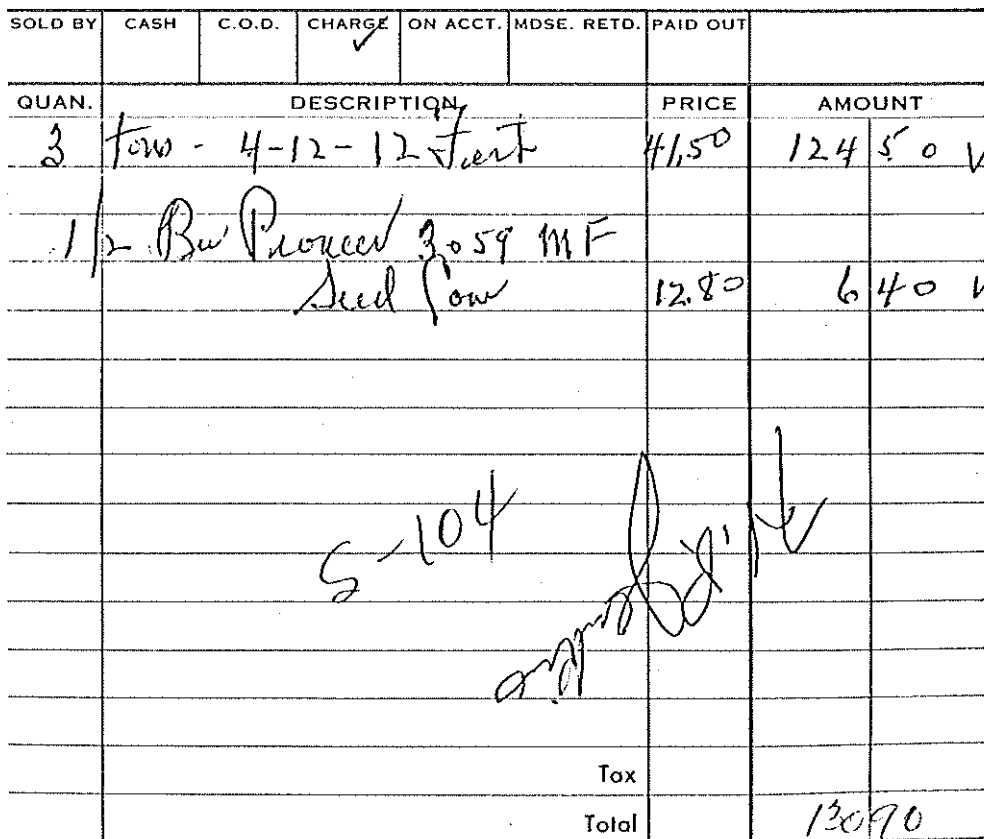 SOLD BY CASH C.O.D. CHARGE ✓ ON ACCT. MDSE. RETD. PAID OUT
QUAN. DESCRIPTION PRICE AMOUNT
3 tons - 4-12-12 Fert 41.50 124 50 V
1/2 Bu Pioneer 3059 MF
Seed Corn 12.80 6 40 V
S-104
Tax
Total 130 90